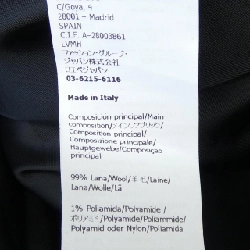 C/Goya, 4
20001 - Madrid
SPAIN
C.I.F. A-28003861
LVMH
ファッショングループ・
ジャパン株式会社
ロエベジャパン
03-6215-6116
Made in Italy
Composition principal/Main
composition/メインファブリック/
Composition principale/
Composizione principale/
Hauptgewebe/Composição
principal
99% Lana/Wool/羊毛/Laine/
Lana/Wolle/Lã
1% Poliamida/Polyamide/
ポリアミド/Polyamide/Poliammide/
Polyamid oder Nylon/Poliamida